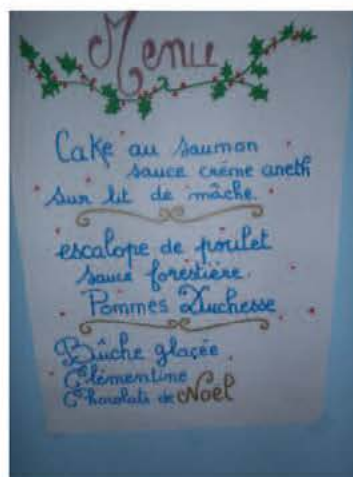 Menu
Cake au saumon
sauce crème aneth
sur lit de mâche.
escalope de poulet
sauce forestière.
Pommes Duchesse
Bûche glaçée
Clémentine
Chocolats de Noël